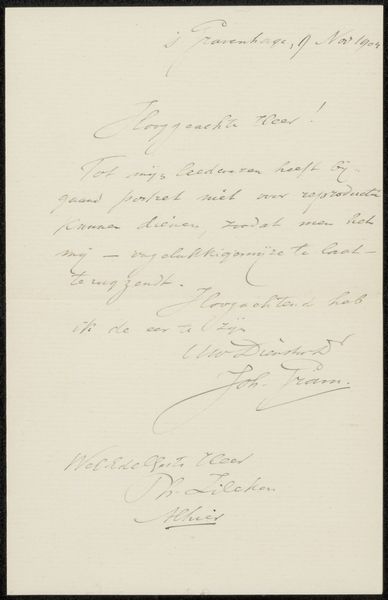 's Gravenhage, 9 Nov 1904
Hooggeachte Heer!
Tot mijn leedwezen heeft bij-
gaand portret niet voor reproductie
kunnen dienen, zoodat men het
mij — ongelukkigerwijze te laat —
terugzendt.
Hoogachtend heb
ik de eer te zijn
Uw Dienstw. Dr
Joh. Gram.
WelEdelGeb Heer
Ph. Zilcken
Alhier